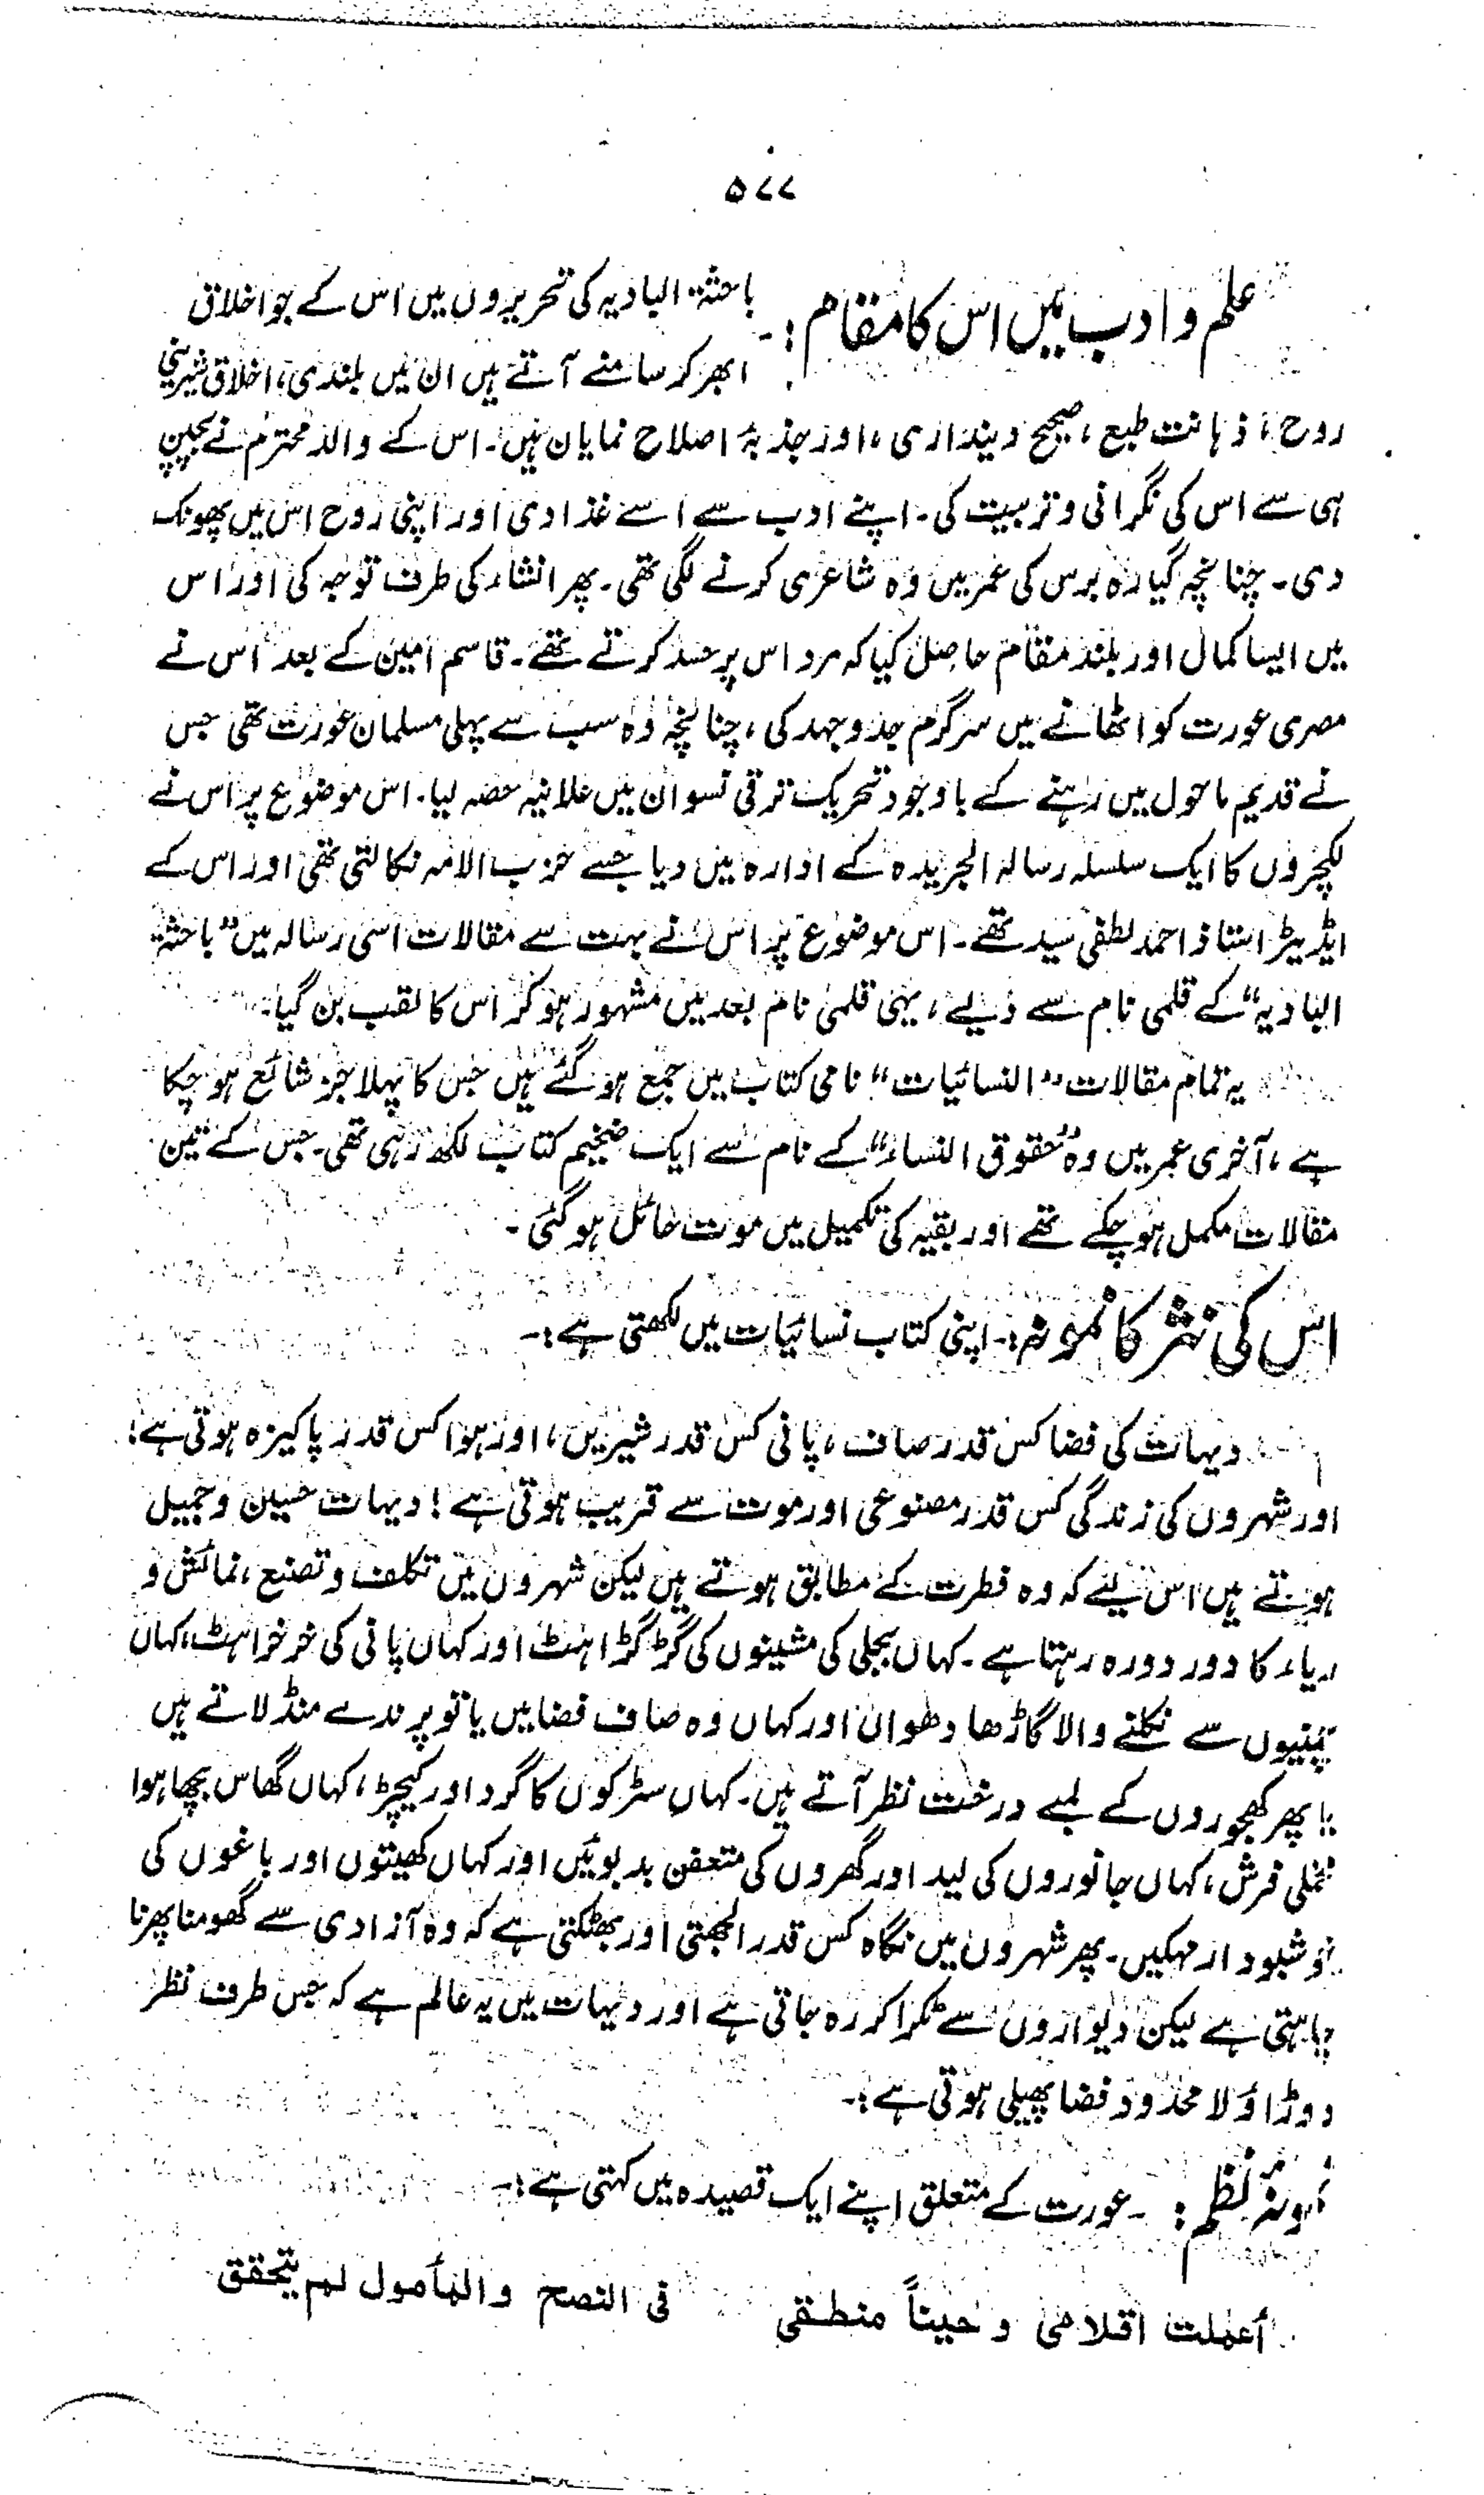 ۵۷۷
علم و ادب میں اس کا مقام :- باحثۃ البادیہ کی تحریروں میں اس کے جو اخلاق
ابھر کر سامنے آتے ہیں ان میں بلندی، اخلاق شیرینی
روح، ذہانت طبع، صحیح دینداری، اور جذبۂ اصلاح نمایاں ہیں۔ اس کے والد محترم نے بچپن
ہی سے اس کی نگرانی و تربیت کی۔ اپنے ادب سے اسے غذا دی اور اپنی روح اس میں پھونک
دی۔ چنانچہ گیارہ برس کی عمر میں وہ شاعری کرنے لگی تھی۔ پھر انشاء کی طرف توجہ کی اور اس
میں ایسا کمال اور بلند مقام حاصل کیا کہ مرد اس پر حسد کرتے تھے۔ قاسم امین کے بعد اس نے
مصری عورت کو اٹھانے میں سرگرم جدوجہد کی، چنانچہ وہ سب سے پہلی مسلمان عورت تھی جس
نے قدیم ماحول میں رہنے کے باوجود تحریک ترقی نسواں میں علانیہ حصہ لیا۔ اس موضوع پر اس نے
لکچروں کا ایک سلسلہ رسالہ الجریدہ کے ادارہ میں دیا جسے حزب الامہ نکالتی تھی اور اس کے
ایڈیٹر استاذ احمد لطفی سید تھے۔ اس موضوع پر اس نے بہت سے مقالات اسی رسالہ میں "باحثۃ
البادیہ" کے قلمی نام سے دیے، یہی قلمی نام بعد میں مشہور ہو کر اس کا لقب بن گیا۔
یہ تمام مقالات "النسائیات" نامی کتاب میں جمع ہو گئے ہیں جن کا پہلا جز شائع ہو چکا
ہے، آخری عمر میں وہ "حقوق النساء" کے نام سے ایک ضخیم کتاب لکھ رہی تھی۔ جس کے تین
مقالات مکمل ہو چکے تھے اور بقیہ کی تکمیل میں موت حائل ہو گئی۔
اس کی نثر کا نمونہ :- اپنی کتاب نسائیات میں لکھتی ہے :-
دیہات کی فضا کس قدر صاف، پانی کس قدر شیریں، اور ہوا کس قدر پاکیزہ ہوتی ہے!
اور شہروں کی زندگی کس قدر مصنوعی اور موت سے قریب ہوتی ہے! دیہات حسین و جمیل
ہوتے ہیں اس لیے کہ وہ فطرت کے مطابق ہوتے ہیں لیکن شہروں میں تکلف و تصنع، نمائش و
ریاء کا دور دورہ رہتا ہے۔ کہاں بجلی کی مشینوں کی گڑگڑاہٹ اور کہاں پانی کی خرخراہٹ، کہاں
چمنیوں سے نکلنے والا گاڑھا دھواں اور کہاں وہ صاف فضا میں یا تو پرندے منڈلاتے ہیں
یا پھر کھجوروں کے لمبے درخت نظر آتے ہیں۔ کہاں سڑکوں کا گرد اور کیچڑ، کہاں گھاس بچھا ہوا
مخملی فرش، کہاں جانوروں کی لید اور گھروں کی متعفن بدبوئیں اور کہاں کھیتوں اور باغوں کی
خوشبودار مہکیں۔ پھر شہروں میں نگاہ کس قدر الجھتی اور بھٹکتی ہے کہ وہ آزادی سے گھومنا پھرنا
چاہتی ہے لیکن دیواروں سے ٹکرا کر رہ جاتی ہے اور دیہات میں یہ عالم ہے کہ جس طرف نظر
دوڑاؤ لا محدود فضا پھیلی ہوتی ہے :-
نمونۂ نظم :- عورت کے متعلق اپنے ایک قصیدہ میں کہتی ہے :-
أعملت اقلامی و حیناً منطقی فی النصح والمأمول لم یتحقق